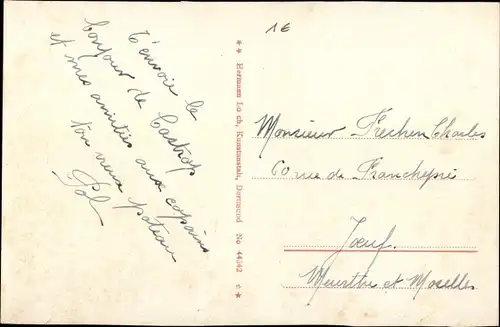 T'envoie le
bonjour de Castrop
et mes amitiés aux copains
ton vieux poteau
Pol
** Hermann Lorch, Kunstanstalt, Dortmund No 44342 **
1€
Monsieur Frechen Charles
60 rue de Franchepré
Jœuf.
Meurthe et Moselle